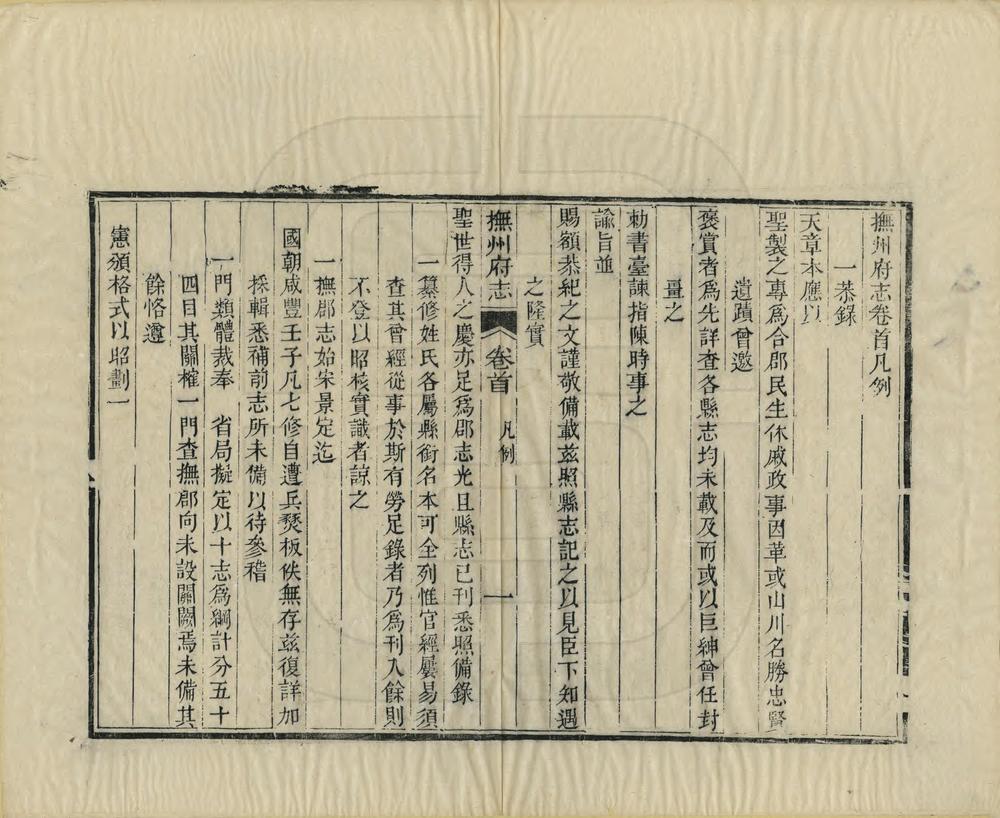 撫州府志卷首凡例
一恭錄
天章本應以
聖製之專為合郡民生休戚政事因革或山川名勝忠賢
遺蹟曾邀
褒賞者為先詳查各縣志均未載及而或以巨紳曾任封
畺之
勅書臺諫指陳時事之
諭旨並
賜額恭紀之文謹敬備載兹照縣志記之以見臣下知遇
之隆實
撫州府志 卷首 凡例 一
聖世得人之慶亦足為郡志光且縣志已刊悉照備錄
一纂修姓氏各屬縣銜名本可全列惟官經屢易須
查其曾經從事於斯有勞足錄者乃為刊入餘則
不登以昭核實識者諒之
一撫郡志始宋景定迄
國朝咸豐壬子凡七修自遭兵燹板佚無存兹復詳加
採輯悉補前志所未備以待參稽
一門類體裁奉 省局擬定以十志為綱計分五十
四目其關榷一門查撫郡向未設關闕焉未備其
餘恪遵
憲頒格式以昭劃一